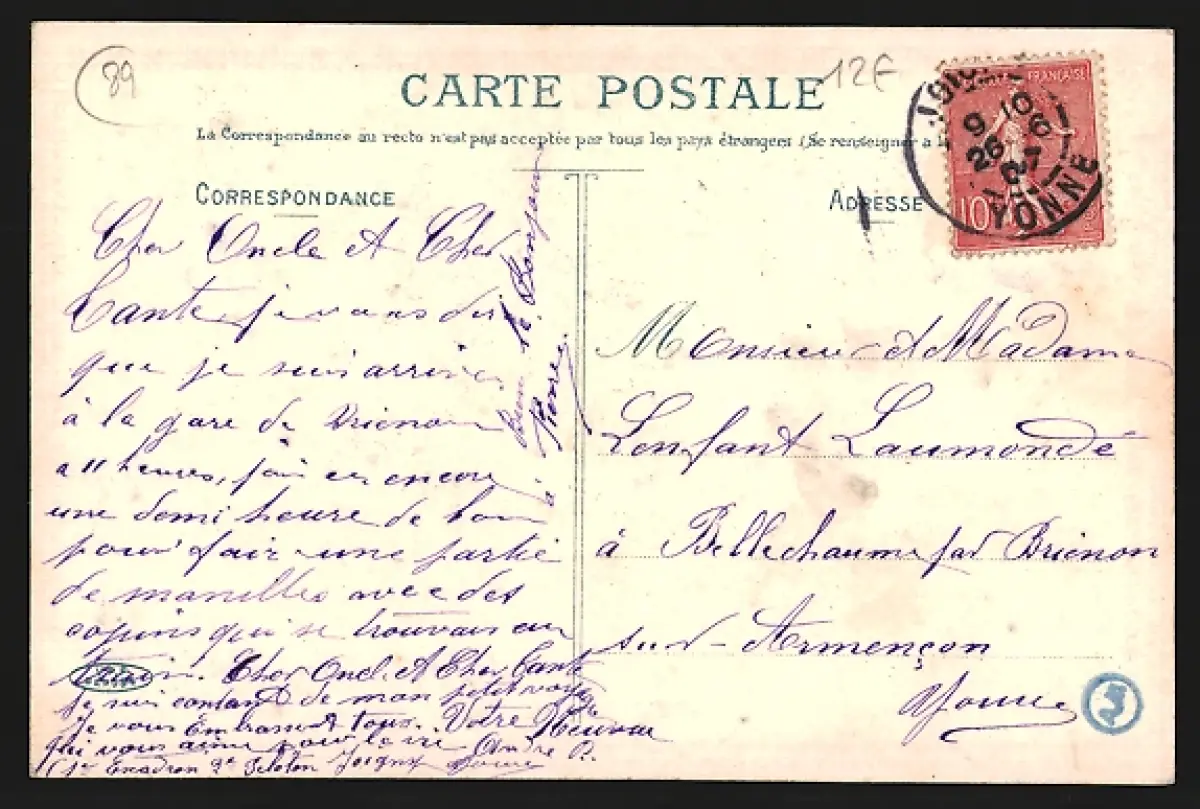 89
12€
CARTE POSTALE
La Correspondance au recto n'est pas acceptée par tous les pays étrangers (Se renseigner à la
CORRESPONDANCE
ADRESSE
FRANÇAISE
10
9 10
26 6
07
YONNE
Cher Oncle et Cher
Tante je vous dir
que je suis arrives
à la gare de Brienon
a 11 heures, j'ai eu encore
une demi heure de bon
pour fair une partie
de manilles avec des
copins qui se trouvais au
Cher Oncl. et Cher Tante
je suis contant de mon petit voyage
Je vous Embrasse tous. Votre Neuveu
qui vous aime pour la vie André P.
1er Escadron 2e Peloton Joigny Yonne
le Bonjour
à Pierre.
Monsieur et Madame
Lenfant Laumonde
à Bellechaume par Brienon
sur-Armençon
Yonne